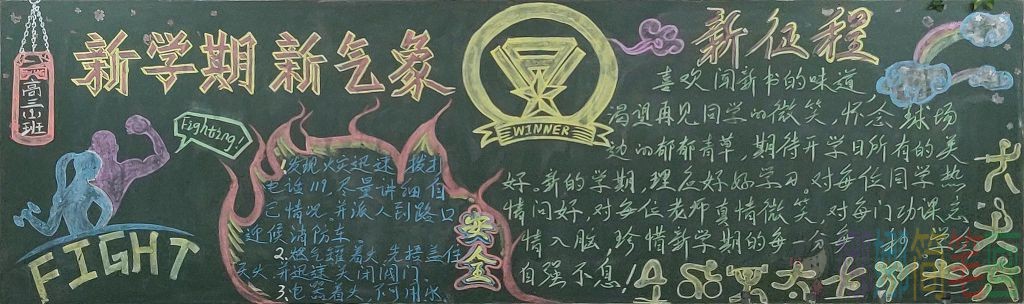 高三班
新学期 新气象
Fighting!
FIGHT
发现火灾迅速拨打
电话119.尽量讲细自
己情况.并派人到路口
迎候消防车
2.燃气罐着火,先捂盖住
灭火,并迅速关闭阀门
3.电器着火,不可用水.
安全
WINNER
新征程
喜欢闻新书的味道
渴望再见同学的微笑,怀念球场
边的郁郁青草,期待开学日所有的美
好。新的学期,理应好好学习.对每位同学热
情问好,对每位老师真情微笑,对每门功课
情入脑,珍惜新学期的每一分每
自强不息!